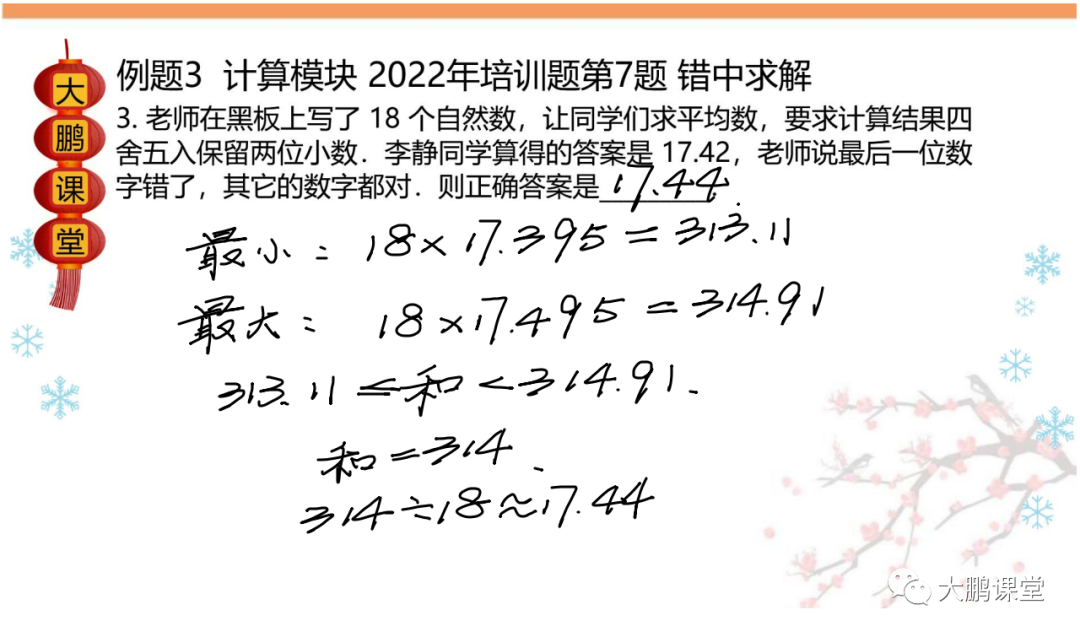 大鹏课堂
例题3 计算模块 2022年培训题第7题 错中求解
3. 老师在黑板上写了 18 个自然数，让同学们求平均数，要求计算结果四
舍五入保留两位小数．李静同学算得的答案是 17.42，老师说最后一位数
字错了，其它的数字都对．则正确答案是 17.44．
最小：18×17.395=313.11
最大：18×17.495=314.91
313.11≤和<314.91.
和=314.
314÷18≈17.44
大鹏课堂